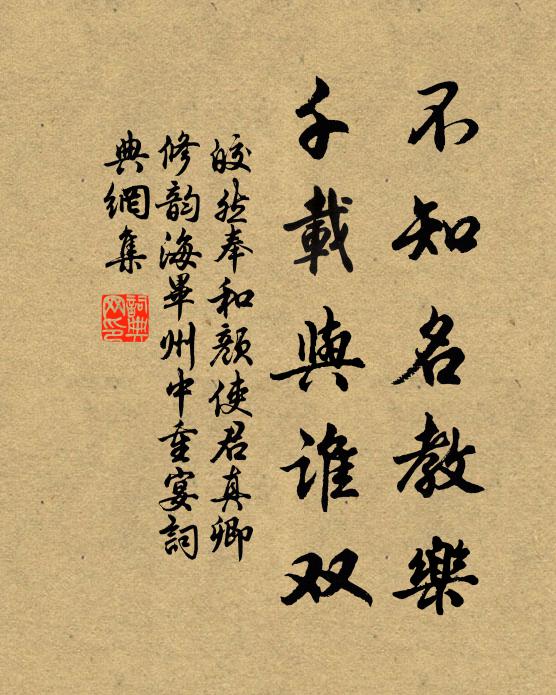 不知名教樂
千載與谁双
皎然奉和顏使君真卿
修韵海畢州中重宴詞
典網集
詞典网印